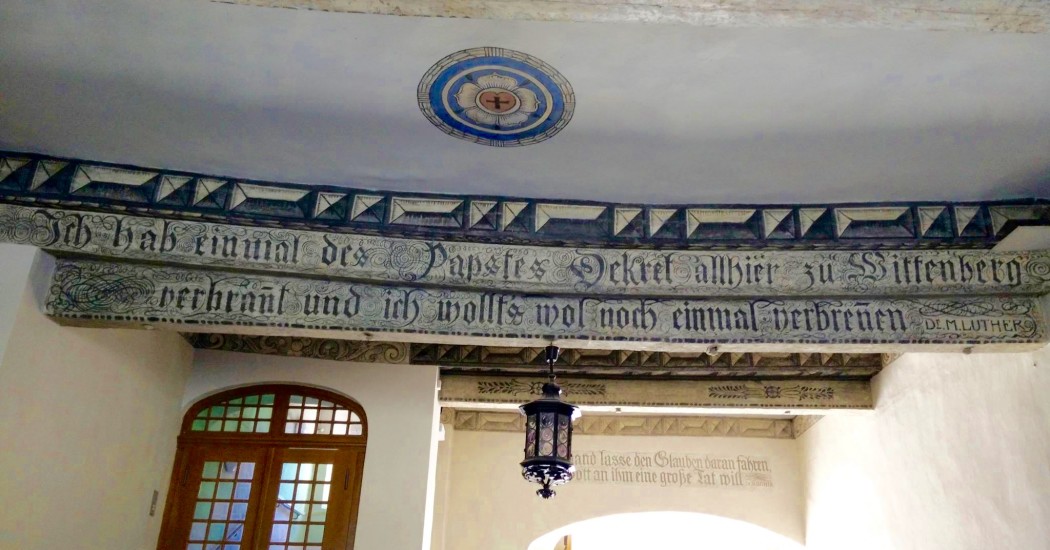 Ich hab einmal des Papstes Dekret allhier zu Wittenberg
verbrañt und ich wollts wol noch einmal verbreñen DR. M. LUTHER
and lasse den Glauben daran fahren
ott an ihm eine große Tat will